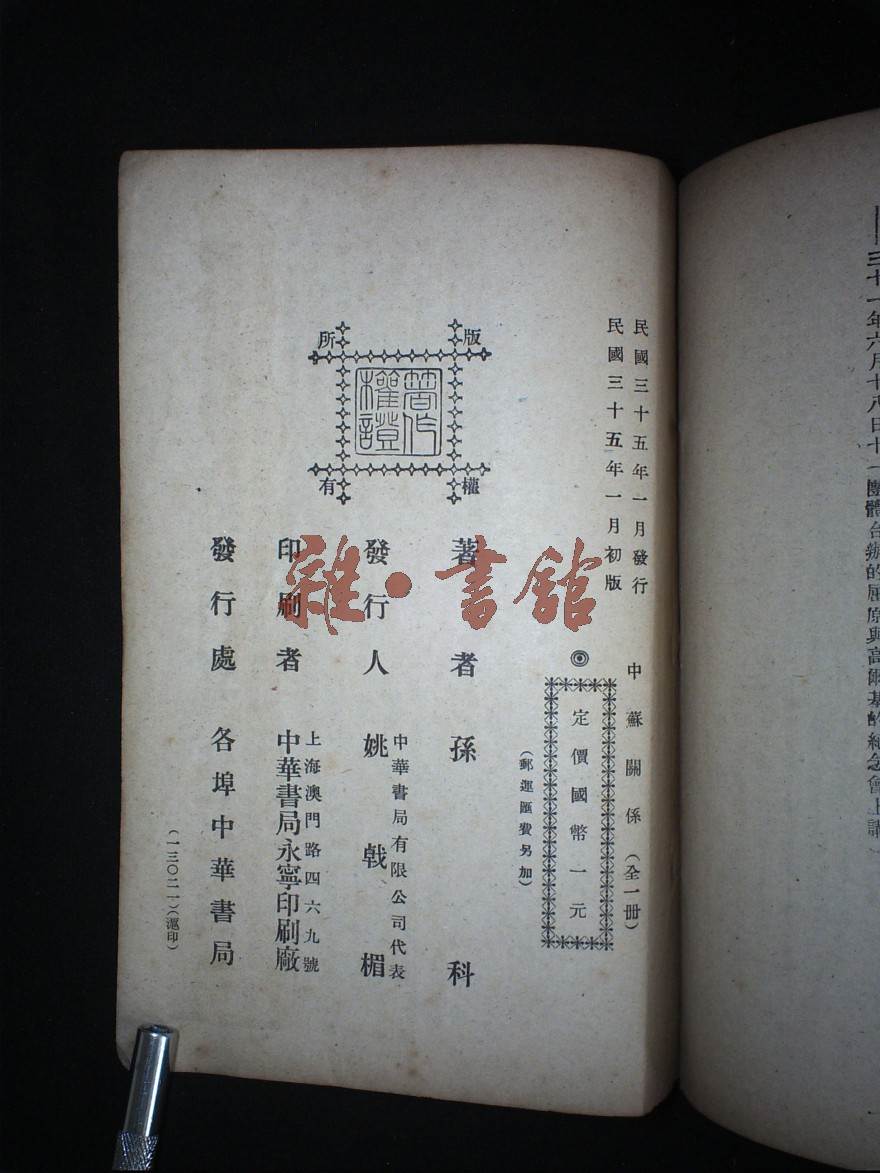 三十一年六月十八日十一團體合辦的屈原與高爾基的紀念會上講
民國三十五年一月發行
民國三十五年一月初版
中蘇關係（全一冊）
◎定價國幣一元
（郵運匯費另加）
版權所有
著作權證
著者 孫科
發行人 中華書局有限公司代表 姚戟楣
印刷者 上海澳門路四六九號 中華書局永寧印刷廠
發行處 各埠中華書局
（一三〇二一）（滬印）
雜·書館